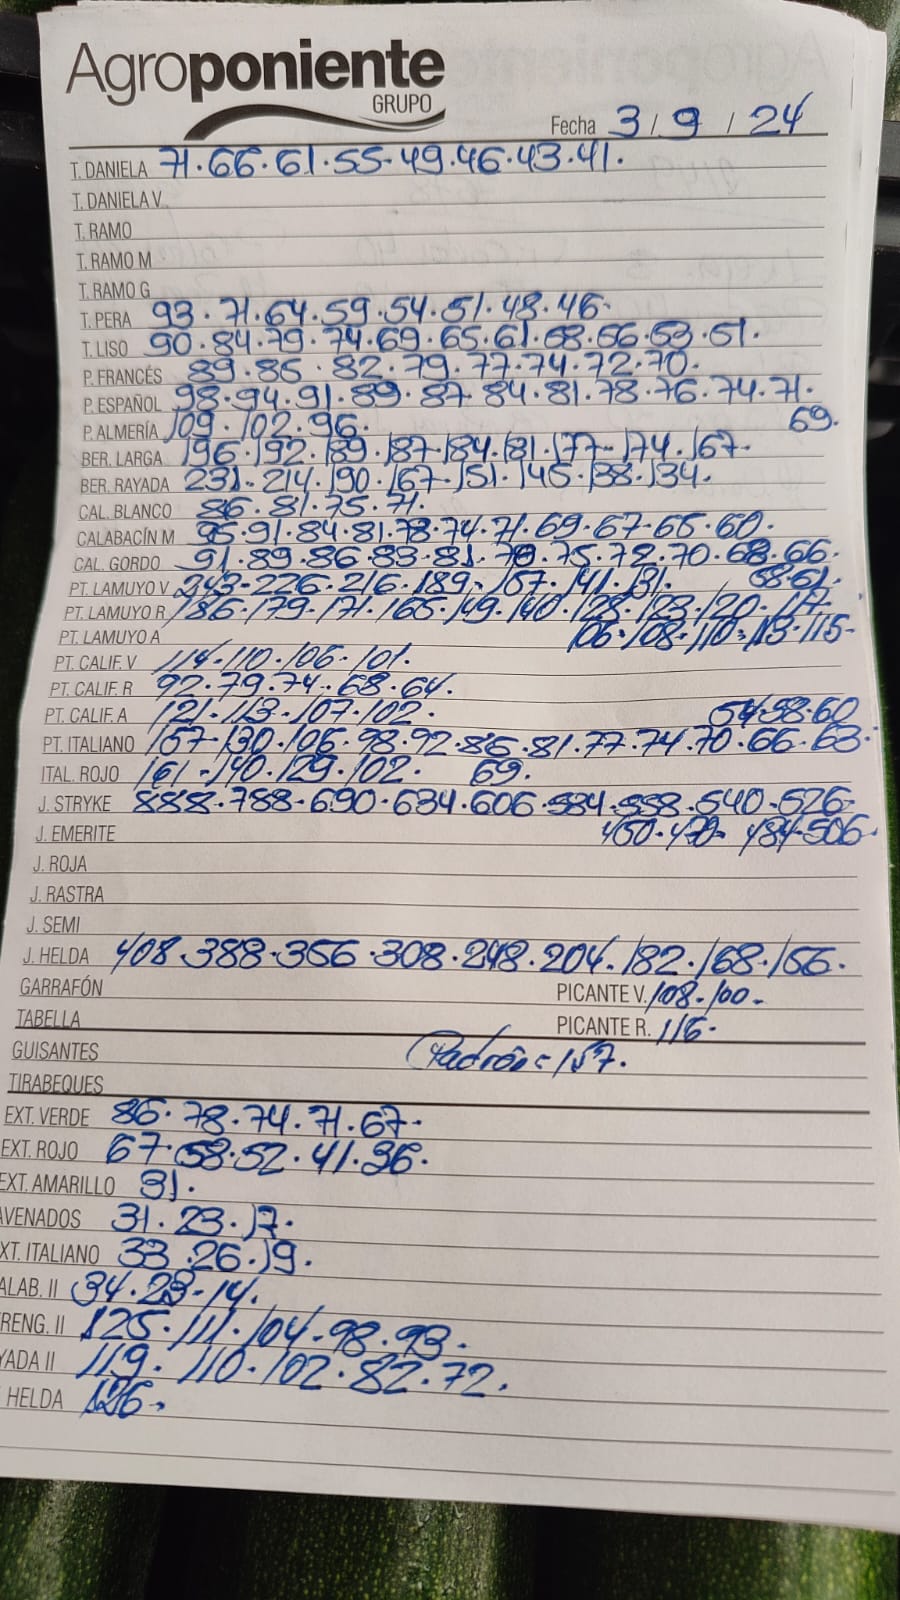 Agroponiente
GRUPO
Fecha 3 / 9 / 24
T. DANIELA 71.66.61.55.49.46.43.41.
T. DANIELA V
T. RAMO
T. RAMO M
T. RAMO G
T. PERA 93.71.64.59.54.51.48.46.
T. LISO 90.84.79.74.69.65.61.58.56.53.51.
P. FRANCÉS 89.85.82.79.77.74.72.70.
P. ESPAÑOL 98.94.91.89.87.84.81.78.76.74.71.
69.
P. ALMERÍA 109.102.96.
BER. LARGA 196.192.189.187.184.181.177.174.167.
BER. RAYADA 231.214.190.167.151.145.138.134.
CAL. BLANCO 86.81.75.71.
CALABACÍN M 95.91.84.81.78.74.71.69.67.65.60.
CAL. GORDO 91.89.86.83.81.79.75.72.70.68.66.
58.61.
PT. LAMUYO V 243.226.216.189.157.141.131.
PT. LAMUYO R 186.179.171.165.149.140.128.123.120.117.
106.108.110.113.115.
PT. LAMUYO A
PT. CALIF. V 114.110.106.101.
PT. CALIF. R 92.79.74.68.64.
PT. CALIF. A 121.113.107.102.
54.58.60
PT. ITALIANO 157.130.106.98.92.86.81.77.74.70.66.63.
ITAL. ROJO 161.140.129.102. 69.
J. STRYKE 888.788.690.634.606.584.558.540.526.
450.470. 484.506.
J. EMERITE
J. ROJA
J. RASTRA
J. SEMI
J. HELDA 408.388.356.308.248.204.182.168.156.
GARRAFÓN PICANTE V. 108.100.
TABELLA PICANTE R. 116.
GUISANTES Padrón = 157.
TIRABEQUES
EXT. VERDE 86.78.74.71.67.
EXT. ROJO 67.58.52.41.36.
EXT. AMARILLO 31.
AVENADOS 31.23.17.
XT. ITALIANO 33.26.19.
ALAB. II 34.23.14.
RENG. II 125.111.104.98.93.
YADA II 119.110.102.82.72.
HELDA 126.